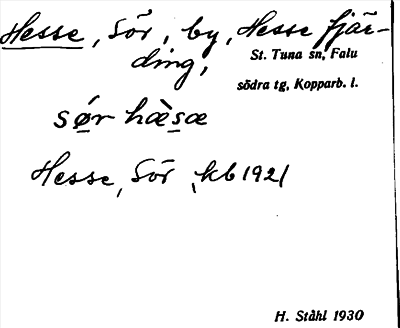 Hesse, Sör, by, Hesse fjär-
ding,
St. Tuna sn, Falu
södra tg, Kopparb. l.
sǿr hæ̀sæ
Hesse, Sör, kb 1921
H. Ståhl 1930